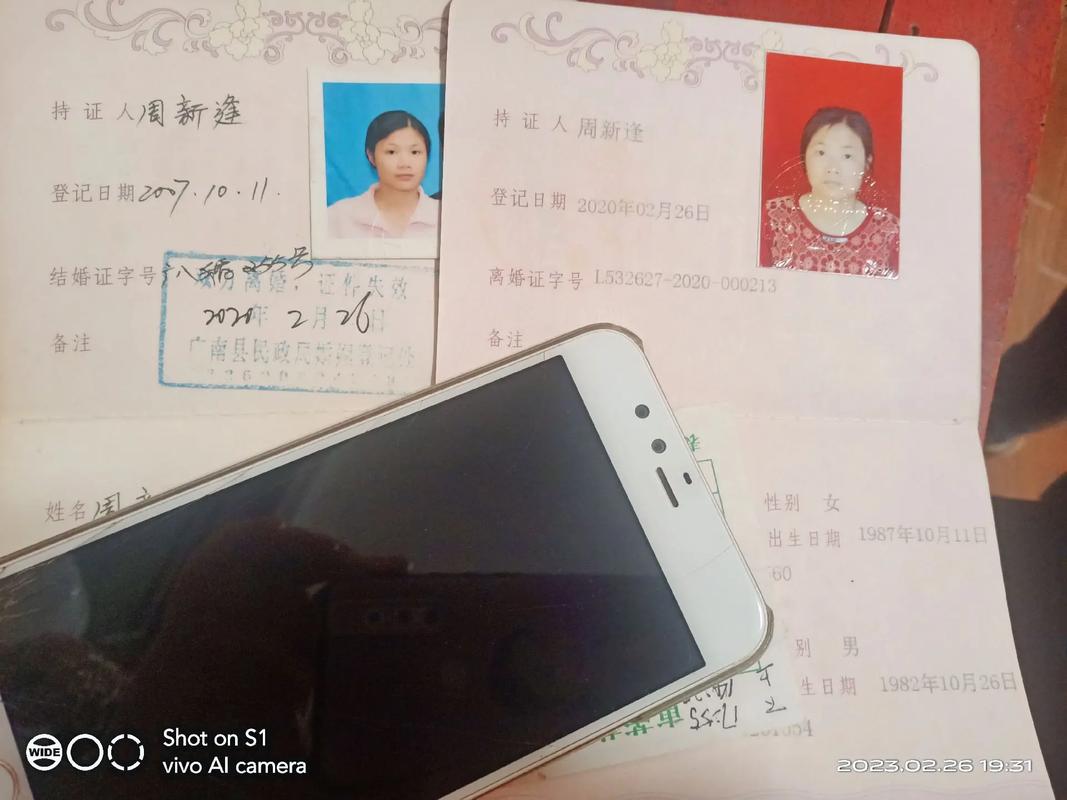 持证人周新逢
登记日期2007.10.11.
结婚证字号
双方离婚，证件失效
2020年2月26日
广南县民政局婚姻登记处
备注
姓名周
持证人 周新逢
登记日期 2020年02月26日
离婚证字号 L532627-2020-000213
备注
性别 女
出生日期 1987年10月11日
60
别 男
生日期 1982年10月26日
17:55
下
上
WIDE
Shot on S1
vivo AI camera
2023.02.26 19:31